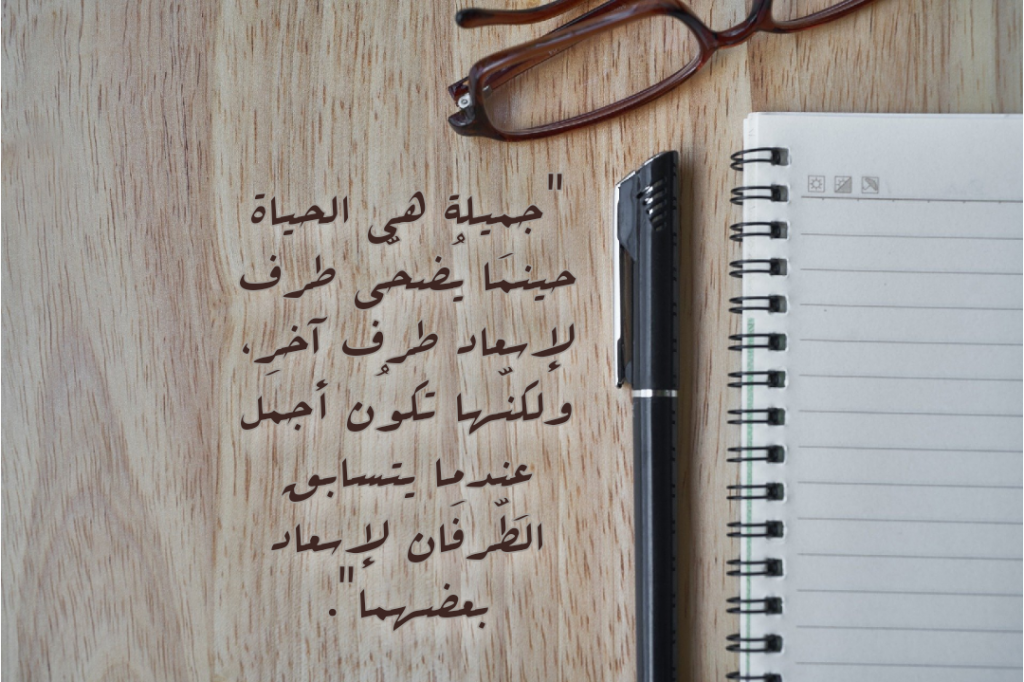 "جميلة هي الحياة
حينمَا يُضحّي طرف
لإسعاد طرف آخرِ،
ولكنّها تكوُن أجمل
عندما يتسابق
الطَّرفَان لإسعاد
بعضهما".